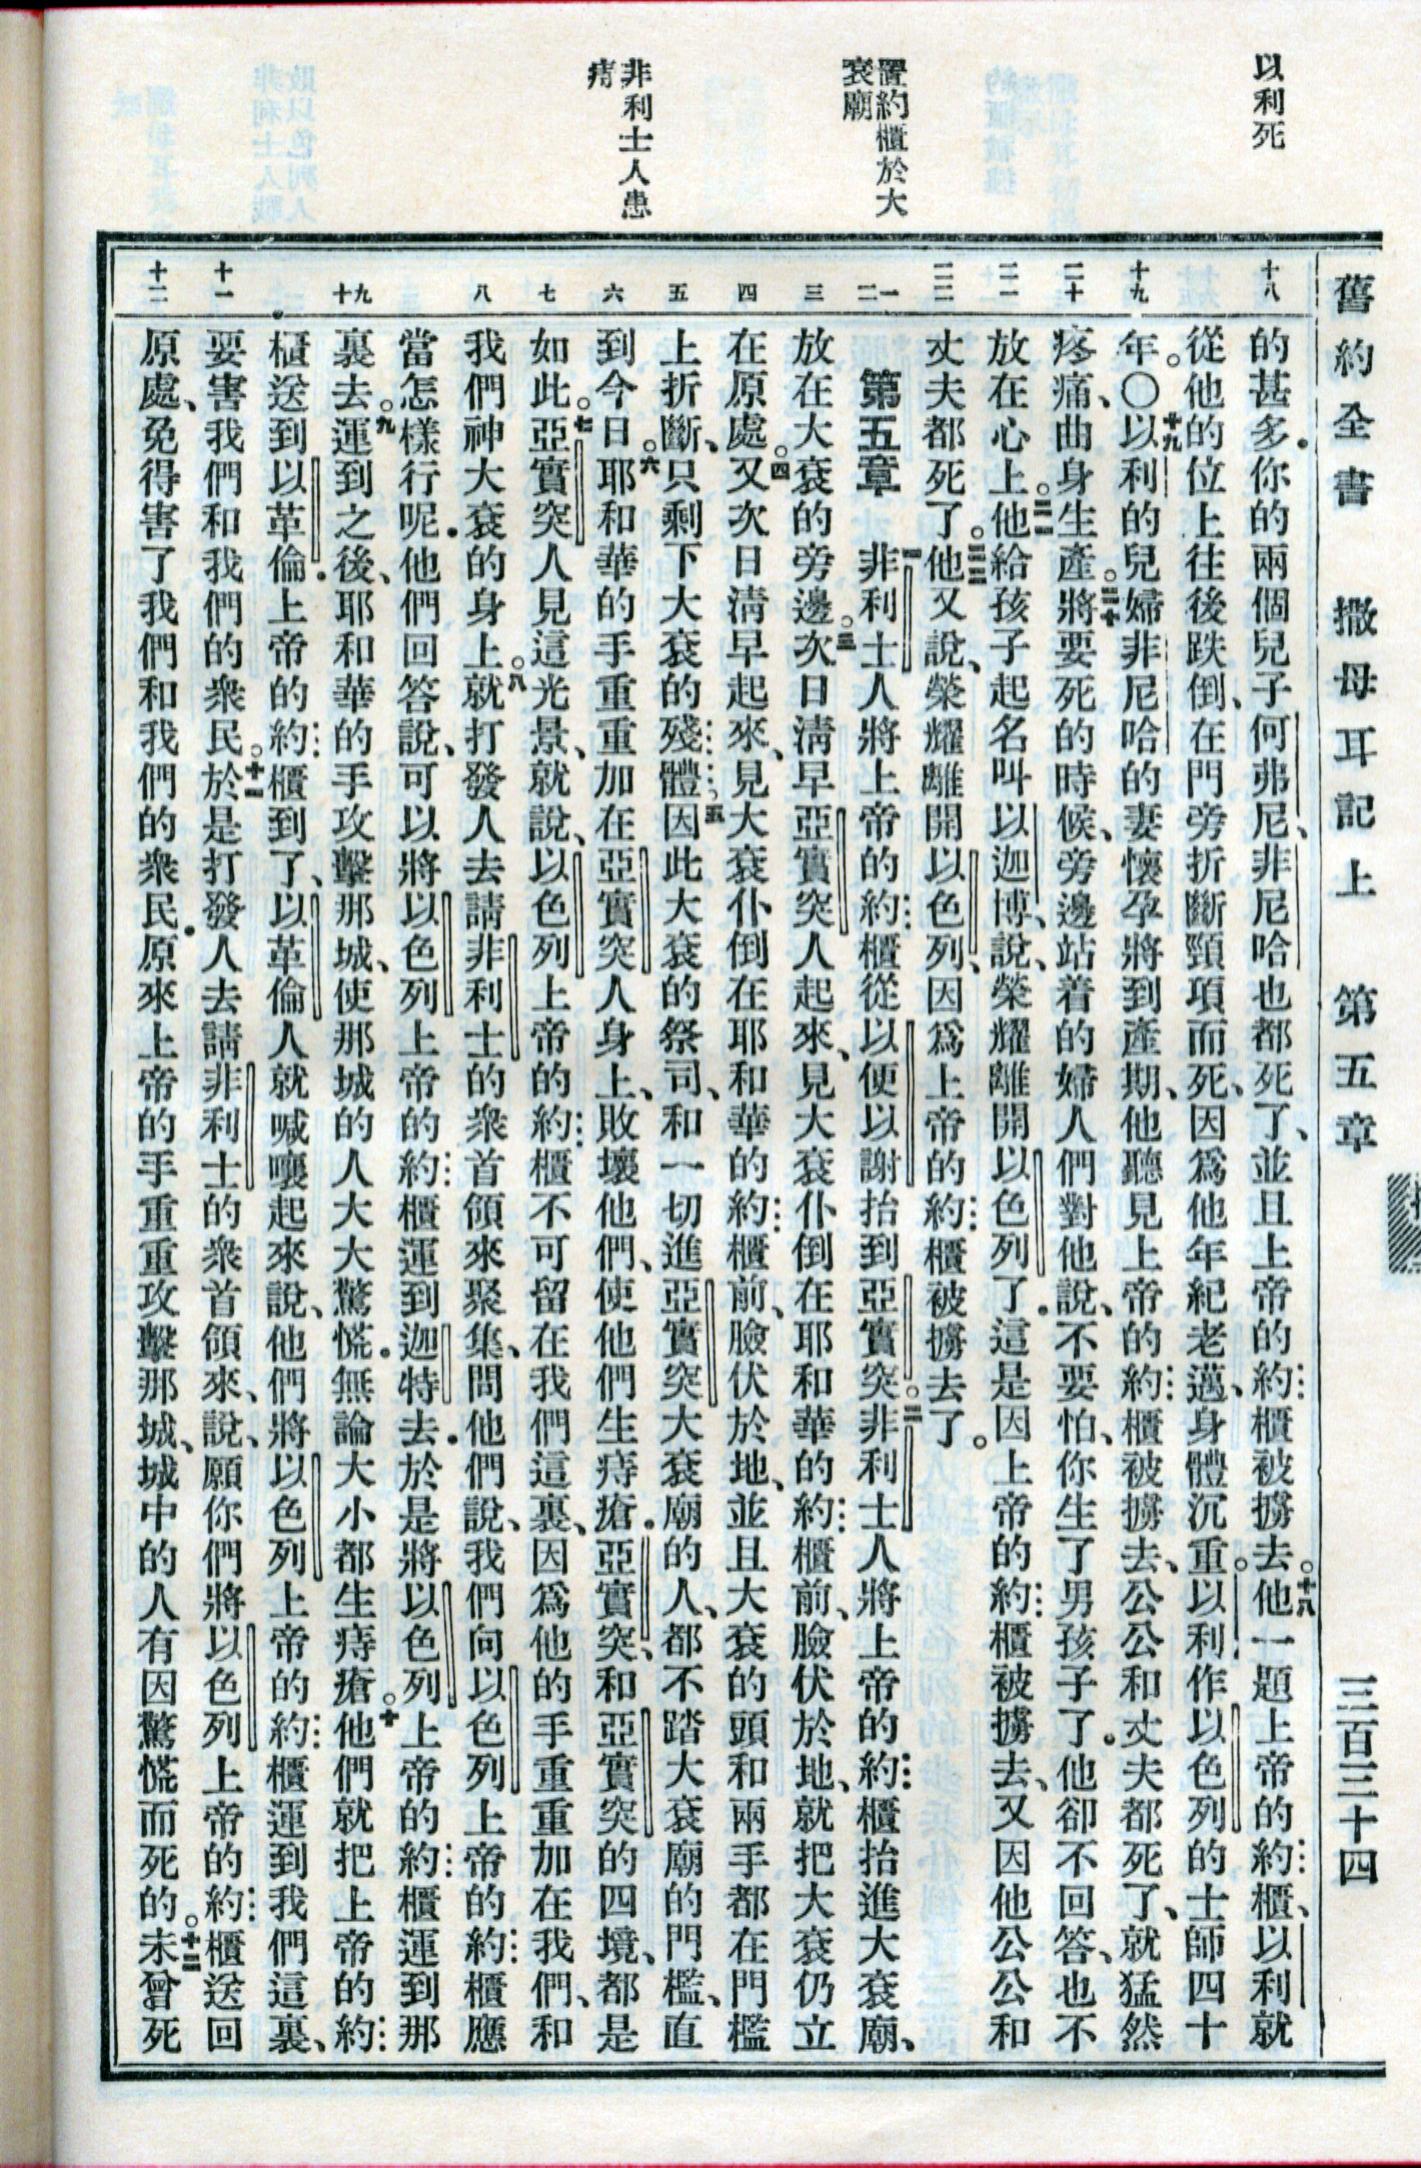 舊約全書　撒母耳記上　第五章　三百三十四
以利死
置約櫃於大
袞廟
非利士人患
痔
十八
十九
二十
二一
二二
一 二
三
四
五
六
七
八
九 十
十一
十二
的甚多．你的兩個兒子何弗尼、非尼哈也都死了、並且上帝的約櫃被擄去。十八他一題上帝的約櫃、以利就
從他的位上往後跌倒、在門旁折斷頸項而死、因爲他年紀老邁、身體沉重。以利作以色列的士師四十
年。〇十九以利的兒婦非尼哈的妻懷孕將到產期、他聽見上帝的約櫃被擄去、公公和丈夫都死了、就猛然
疼痛、曲身生產。二十將要死的時候、旁邊站着的婦人們對他說、不要怕、你生了男孩子了．他卻不回答、也不
放在心上。二一他給孩子起名叫以迦博、說、榮耀離開以色列了．這是因上帝的約櫃被擄去、又因他公公和
丈夫都死了。二二他又說、榮耀離開以色列、因爲上帝的約櫃被擄去了。
第五章　一非利士人將上帝的約櫃從以便以謝抬到亞實突。二非利士人將上帝的約櫃抬進大袞廟、
放在大袞的旁邊。三次日淸早亞實突人起來、見大袞仆倒在耶和華的約櫃前、臉伏於地、就把大袞仍立
在原處。四又次日淸早起來、見大袞仆倒在耶和華的約櫃前、臉伏於地、並且大袞的頭和兩手都在門檻
上折斷、只剩下大袞的殘體．五因此大袞的祭司、和一切進亞實突大袞廟的人、都不踏大袞廟的門檻、直
到今日。六耶和華的手重重加在亞實突人身上、敗壞他們、使他們生痔瘡．亞實突、和亞實突的四境、都是
如此。七亞實突人見這光景、就說、以色列上帝的約櫃不可留在我們這裏、因爲他的手重重加在我們、和
我們神大袞的身上。八就打發人去請非利士的衆首領來聚集、問他們說、我們向以色列上帝的約櫃應
當怎樣行呢．他們回答說、可以將以色列上帝的約櫃運到迦特去．於是將以色列上帝的約櫃運到那
裏去。九運到之後、耶和華的手攻擊那城、使那城的人大大驚慌．無論大小都生痔瘡。十他們就把上帝的約
櫃送到以革倫．上帝的約櫃到了、以革倫人就喊嚷起來說、他們將以色列上帝的約櫃運到我們這裏、
要害我們和我們的衆民。十一於是打發人去請非利士的衆首領來、說、願你們將以色列上帝的約櫃送回
原處、免得害了我們和我們的衆民．原來上帝的手重重攻擊那城、城中的人有因驚慌而死的。十二未曾死